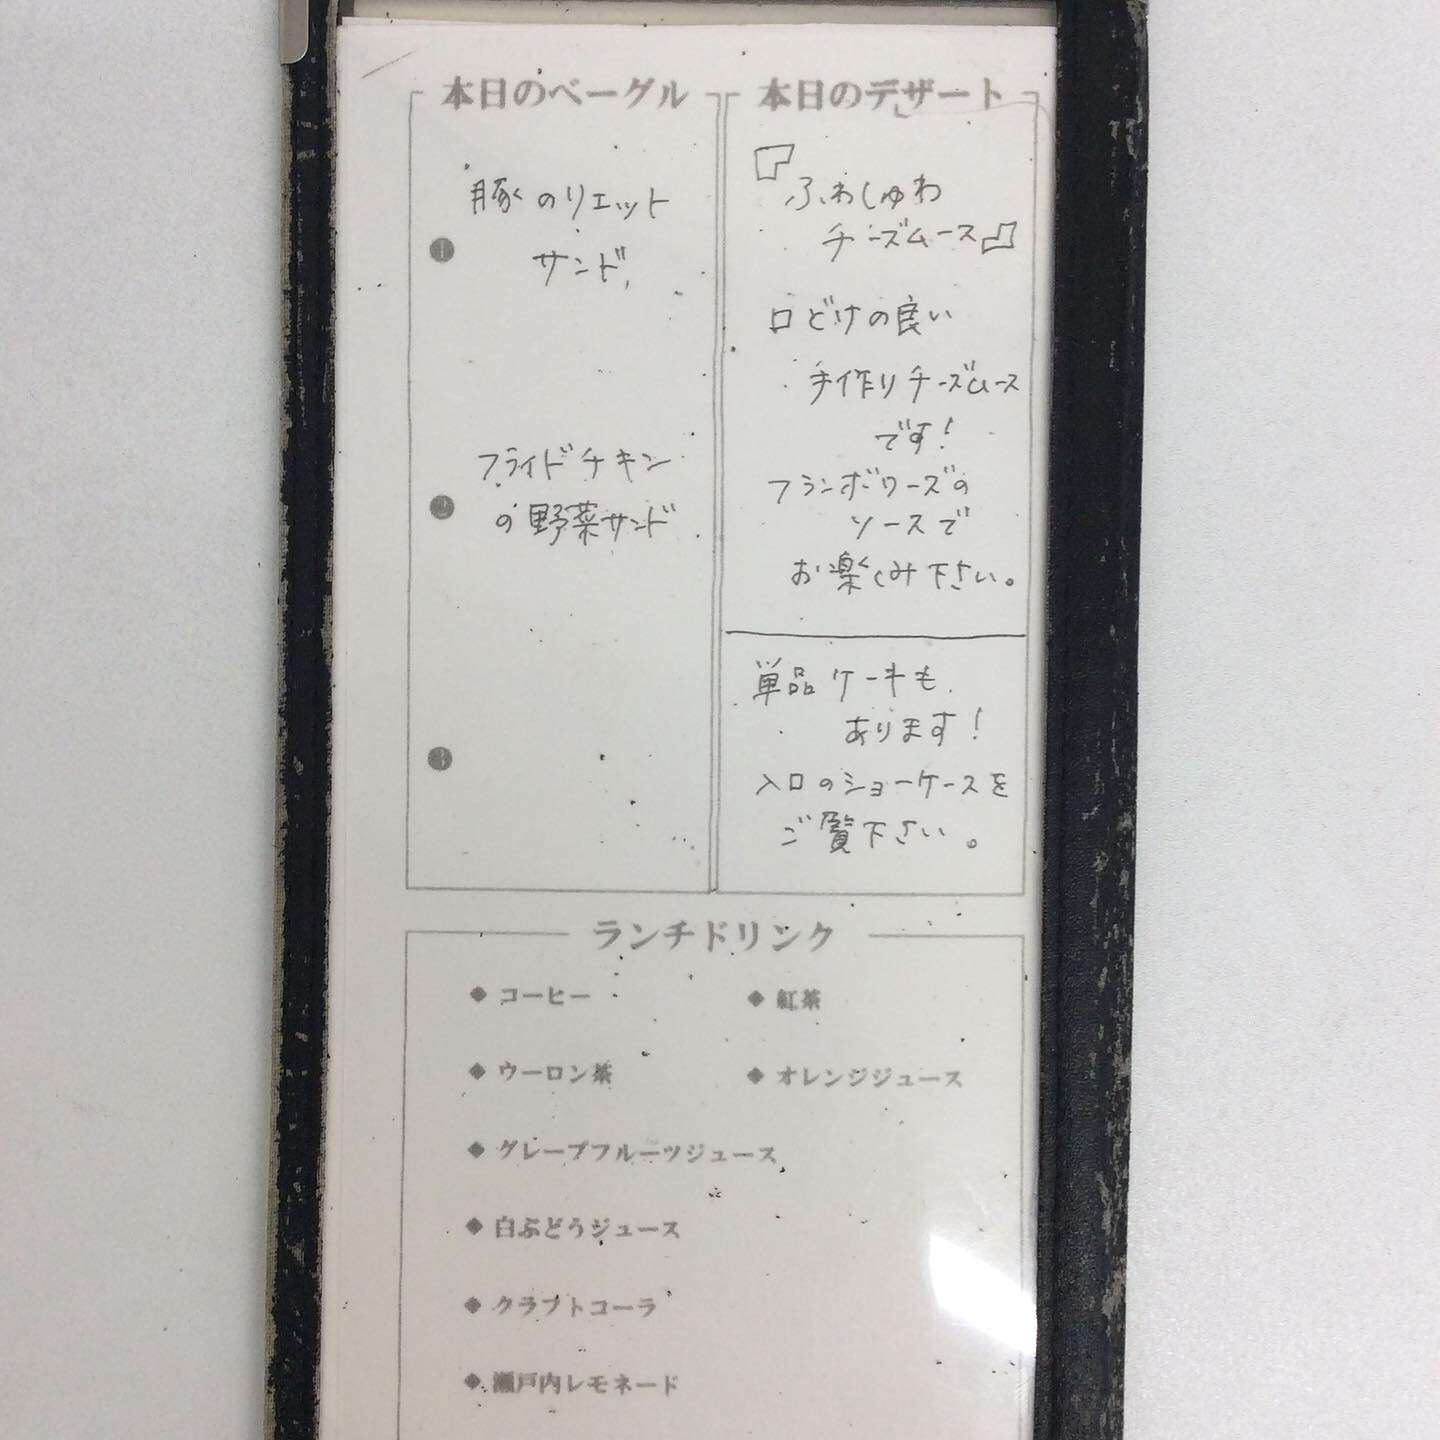 本日のベーグル
❶
豚のリエット
サンド
❷
フライドチキン
の野菜サンド
❸
本日のデザート
『ふわしゅわ
チーズムース』
口どけの良い
手作りチーズムース
です!
フランボワーズの
ソースで
お楽しみ下さい。
単品ケーキも
あります!
入口のショーケースを
ご覧下さい。
ランチドリンク
◆ コーヒー ◆ 紅茶
◆ ウーロン茶 ◆ オレンジジュース
◆ グレープフルーツジュース
◆ 白ぶどうジュース
◆ クラフトコーラ
◆ 瀬戸内レモネード